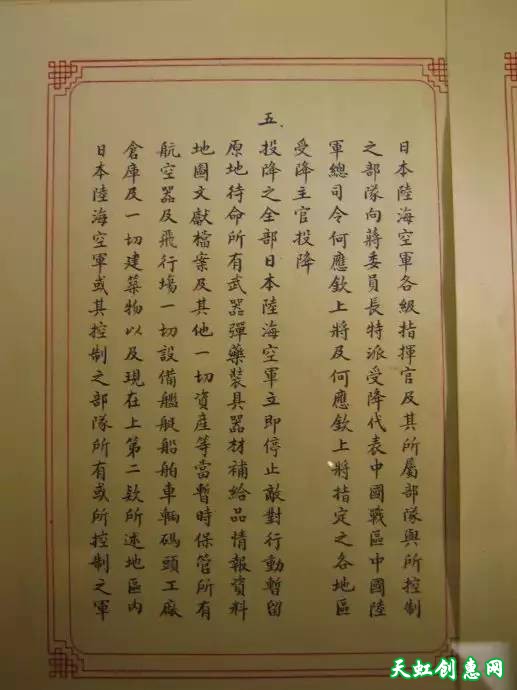 日本陸海空軍各級指揮官及其所屬部隊與所控制
之部隊向蔣委員長特派受降代表中國戰區中國陸
軍總司令何應欽上將及何應欽上將指定之各地區
受降主官投降
五.
投降之全部日本陸海空軍立即停止敵對行動暫留
原地待命所有武器彈藥裝具器材補給品情報資料
地圖文獻檔案及其他一切資產等當暫時保管所有
航空器及飛行場一切設備艦艇船舶車輛碼頭工廠
倉庫及一切建築物以及現在上第二款所述地區內
日本陸海空軍或其控制之部隊所有或所控制之軍
天虹创惠网